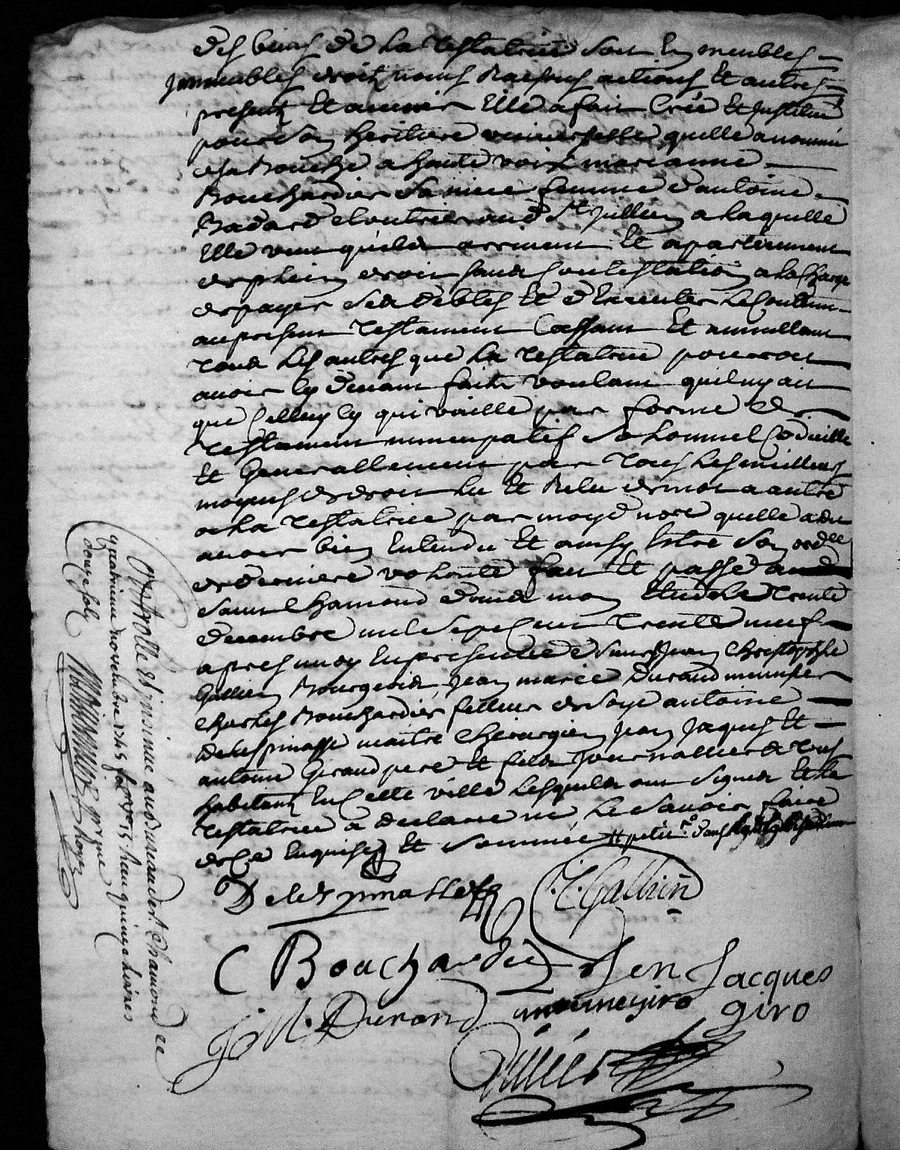 des biens de la testatrice soit en meubles
immeubles droits noms raisons actions et autres
present et avenir Elle a fait Créé et Institué
pour son heritiere universelle quelle a nommé
de sa Bouche a haute voix marianne
Bouchardier sa niece femme d'antoine
Badard cloutrier au d St Jullien a laquelle
Elle veut quils arrivent Et apartiennent
de plein droit sans Contestation a la charge
de payer ses debtes Et d'Executer le Contenu
au present testament Cassant Et annullant
tous les autres que la testatrice pourroit
avoir cy devant faits voulant quil ny ait
que celluy cy qui vaille par forme de
testament nuncupatif solonnel codicille
Et Generallement par tous les meilleurs
moyens de droit lu Et Relu de mot a autre
a la testatrice par moyd nore quelle a dit
avoir bien Entendu Et ainsy Estre son ordce
de derniere volonté fait Et passé aud
Saint Chamond dans mon Etude Le trente
decembre mil sept cent trente neuf
apres midy En presence de sieurs Jean Christophle
Gallien Bourgeois Jean marie Durand menusier
Charles Bouchardier felleur de soye antoine
delespinasse maitre chirurgien Jean Jaques Et
antoine Giraud pere et fils Journalliers tous
habitants En Cette ville lesquels ont signés Et la
testatrice a declaré ne le savoir faire
de Ce Enquise Et sommée
Delespinasse J C Gallien
C Bouchardié Jen Jacques
J M Durand antoine giro giro
Controllé et insinué au bureau de St Chamond ce
quatrieme novembre 1745 Reçu
douze sols